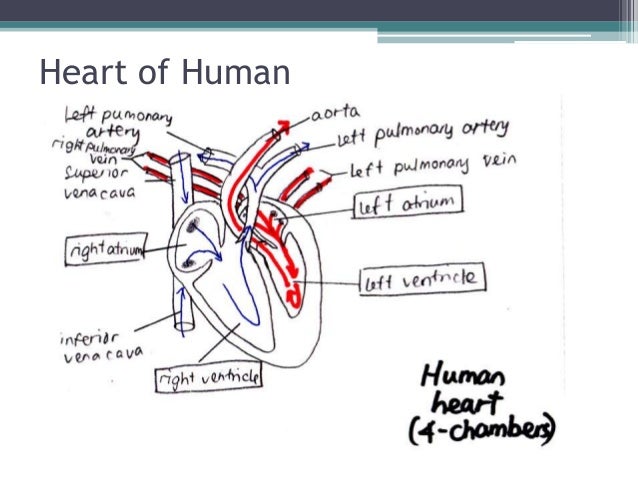 Heart of Human
Left pumonary
artery
right pulmonary
vein
Superior
vena cava
right atrium
inferior
vena cava
right ventricle
aorta
Left pulmonary artery
Left pulmonary vein
left atrium
left ventricle
Human
heart
(4-chambers)